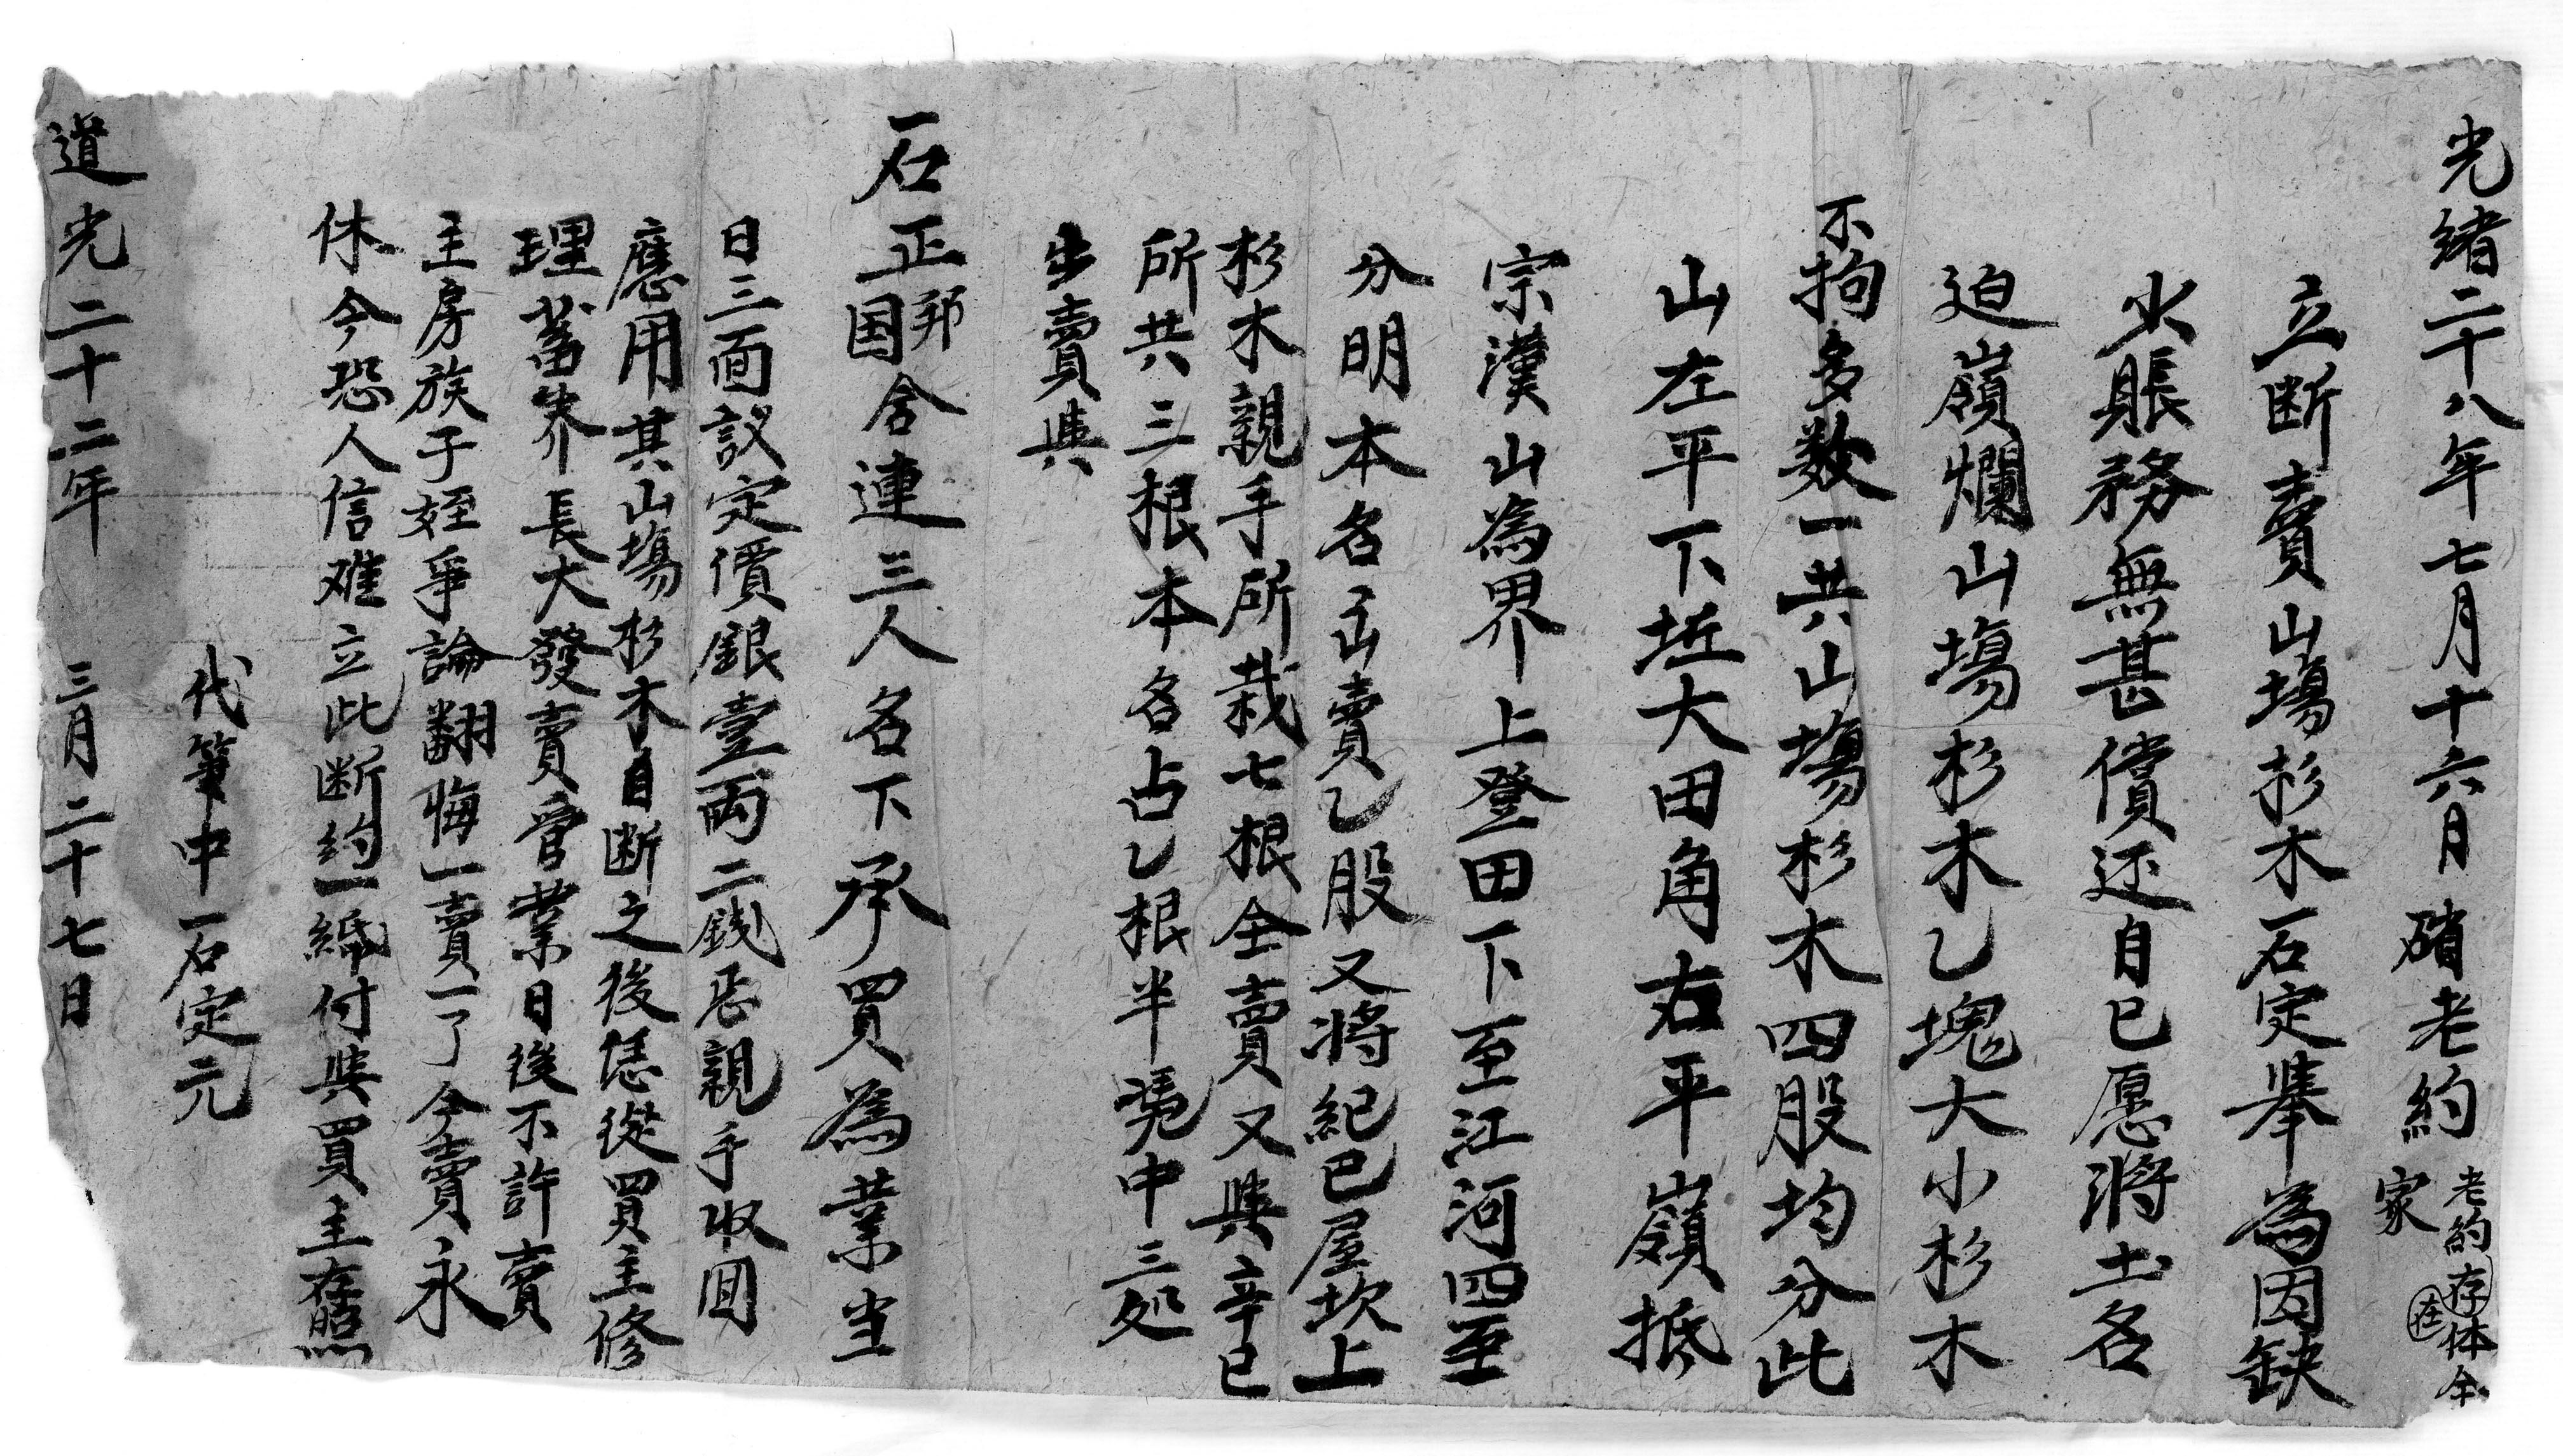 光緒二十八年七月十六月 硝老約
老約存体全
家在
立断賣山塲杉木一石定舉為因缺
火賬務無甚償还自已愿將土名
迫嶺爛山塲杉木乙塊大小杉木
不拘多数一共山塲杉木四股均分此
山左平下坵大田角右平嶺抵
宗漢山為界上登田下至江河四至
分明本名占賣乙股又將紀巳屋坎上
杉木親手所栽七根全賣又與辛巳
所共三根本名占乙根半凴中三処
出賣與
石正邦国含連三人名下承買為業当
日三面議定價銀壹兩二錢恁親手收囬
應用其山塲杉木自断之後恁從買主修
理蓄养長大發賣管業日後不許賣
主房族子姪爭論翻悔一賣一了今賣永
休今恐人信难立此断約一紙付與買主存照
代筆中一石定元
道光二十二年 三月二十七日